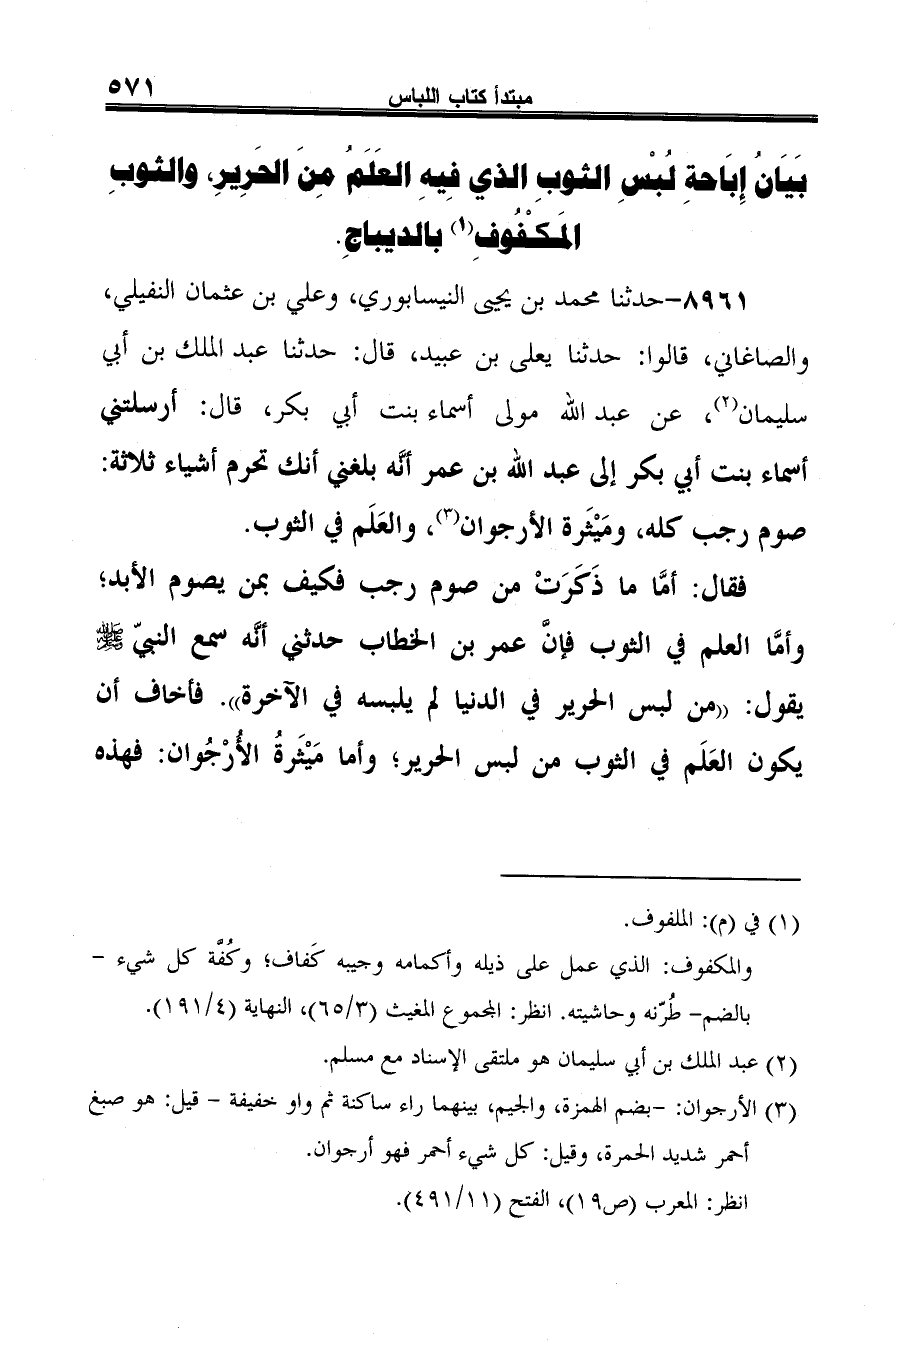 مبتدأ كتاب اللباس ٥٧١
بَيَانُ إِبَاحةِ لُبْسِ الثوبِ الذي فِيهِ العَلَمُ مِنَ الحَرِيرِ، والثوبِ
المَكْفُوفِ(١) بالديباجِ.
٨٩٦١-حدثنا محمد بن يحيى النيسابوري، وعلي بن عثمان النفيلي،
والصاغاني، قالوا: حدثنا يعلى بن عبيد، قال: حدثنا عبد الملك بن أبي
سليمان(٢)، عن عبد الله مولى أسماء بنت أبي بكر، قال: أرسلتني
أسماء بنت أبي بكر إلى عبد الله بن عمر أنَّه بلغني أنك تحرم أشياء ثلاثة:
صوم رجب كله، ومَيْثَرة الأرجوان(٣)، والعَلَم في الثوب.
فقال: أمَّا ما ذَكَرَتْ من صوم رجب فكيف بمن يصوم الأبد؛
وأمَّا العلم في الثوب فإنَّ عمر بن الخطاب حدثني أنَّه سمع النبيّ ﷺ
يقول: ((من لبس الحرير في الدنيا لم يلبسه في الآخرة)). فأخاف أن
يكون العَلَم في الثوب من لبس الحرير؛ وأما مَيْثَرةُ الأُرْجُوان: فهذه
(١) في (م): الملفوف.
والمكفوف: الذي عمل على ذيله وأكمامه وجيبه كَفاف؛ وكُفَّة كل شيء -
بالضم- طُرّته وحاشيته. انظر: المجموع المغيث (٦٥/٣)، النهاية (١٩١/٤).
(٢) عبد الملك بن أبي سليمان هو ملتقى الإسناد مع مسلم.
(٣) الأرجوان: -بضم الهمزة، والجيم، بينهما راء ساكنة ثم واو خفيفة - قيل: هو صبغ
أحمر شديد الحمرة، وقيل: كل شيء أحمر فهو أرجوان.
انظر: المعرب (ص١٩)، الفتح (٤٩١/١١).